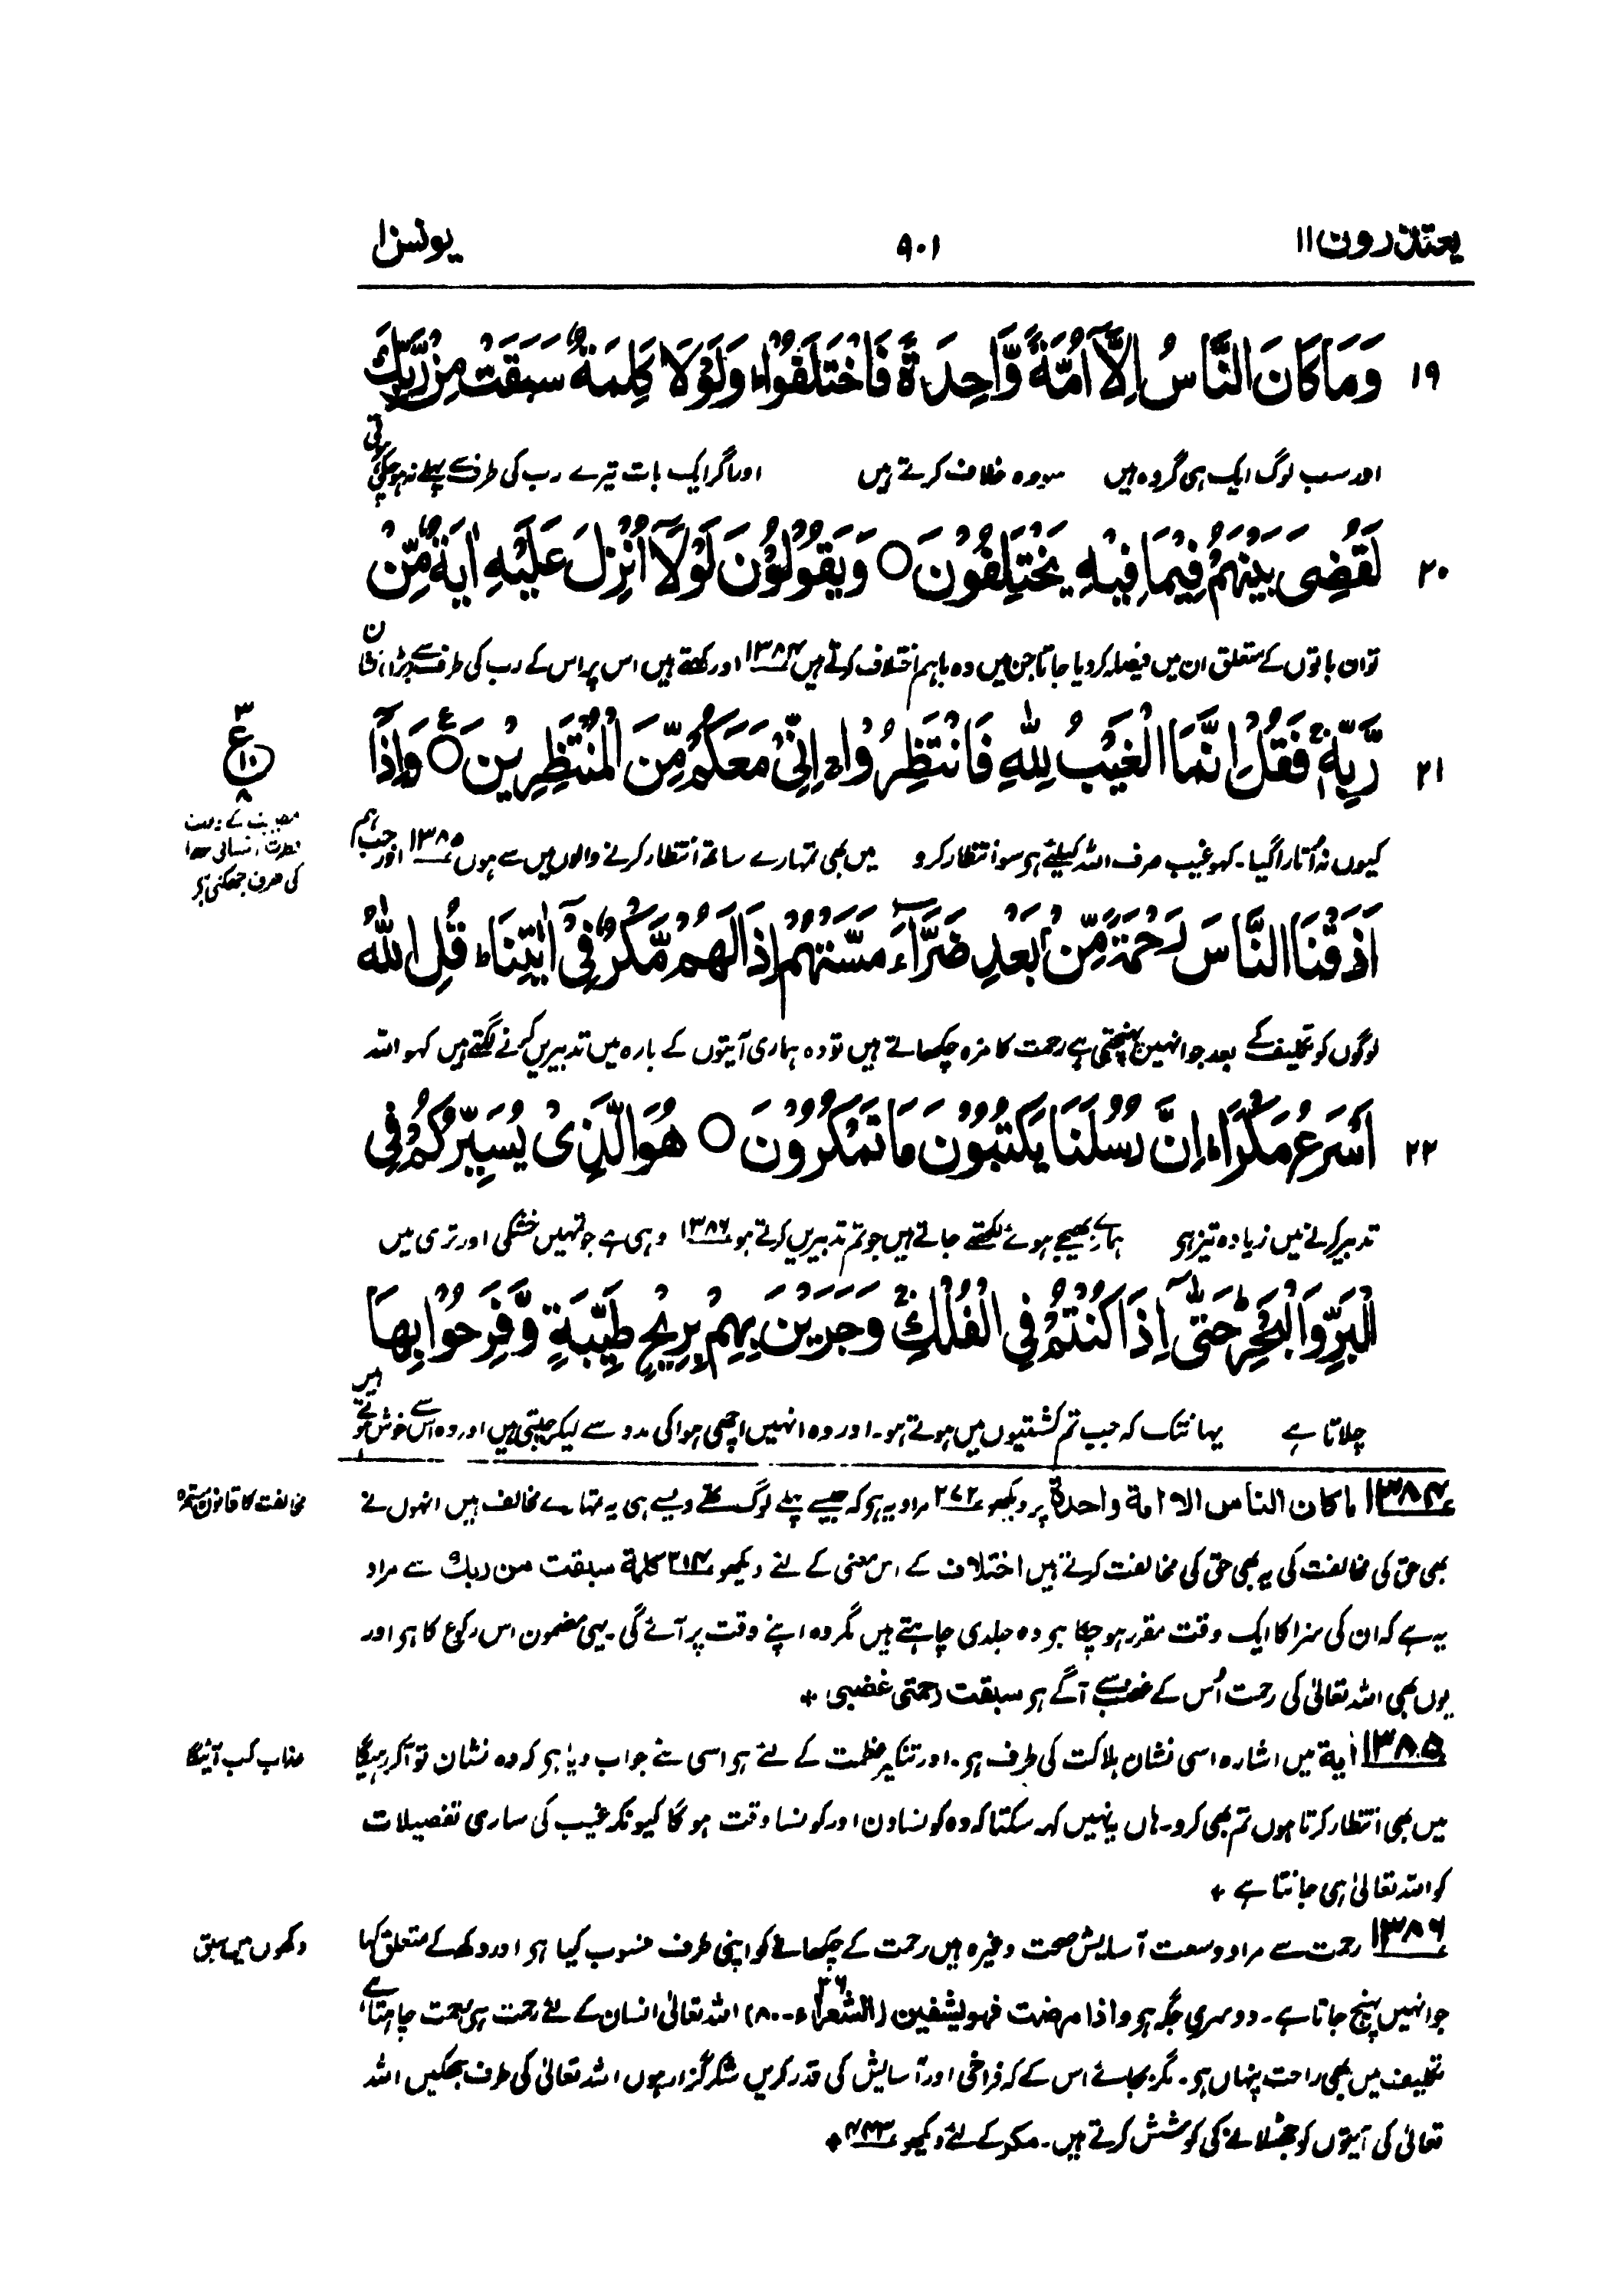 یعتذرون ۱۱
۹۰۱
یونس ۱۰
۱۹ وَمَا كَانَ النَّاسُ اِلَّاۤ اُمَّةً وَّاحِدَةً فَاخْتَلَفُوْا ؕ وَلَوْ لَا كَلِمَةٌ سَبَقَتْ مِنْ رَّبِّكَ
اور سب لوگ ایک ہی گروہ ہیں سو وہ خلاف کرتے ہیں اور اگر ایک بات تیرے رب کی طرف سے پہلے نہ ہو چکی ہوتی
۲۰ لَقُضِیَ بَیْنَهُمْ فِیْمَا فِیْهِ یَخْتَلِفُوْنَ ○ وَیَقُوْلُوْنَ لَوْلَاۤ اُنْزِلَ عَلَیْهِ اٰیَةٌ مِّنْ
تو ان باتوں کے متعلق ان میں فیصلہ کر دیا جاتا جن میں وہ باہم اختلاف کرتے ہیں ۱۳۸۴ اور کہتے ہیں اس پر اس کے رب کی طرف سے بڑا نشان
۲۱ رَّبِّهٖ ۚ فَقُلْ اِنَّمَا الْغَیْبُ لِلّٰهِ فَانْتَظِرُوْا ؕ اِنِّیْ مَعَكُمْ مِّنَ الْمُنْتَظِرِیْنَ ○ ع وَاِذَاۤ
۳
ع
۱۰
۸
کیوں نہ اُتارا گیا۔ کہو غیب صرف اللہ کیلئے ہی ہو سو انتظار کرو میں بھی تمہارے ساتھ انتظار کرنے والوں میں سے ہوں ۱۳۸۵ اور جب ہم
مصیبت کے وقت
فطرت انسانی خدا
کی طرف جھکتی ہے
اَذَقْنَا النَّاسَ رَحْمَةً مِّنْۢ بَعْدِ ضَرَّآءَ مَسَّتْهُمْ اِذَا لَهُمْ مَّكْرٌ فِیْۤ اٰیَاتِنَا ؕ قُلِ اللّٰهُ
لوگوں کو تکلیف کے بعد جو انہیں پہنچتی ہے رحمت کا مزہ چکھاتے ہیں تو وہ ہماری آیتوں کے بارہ میں تدبیریں کرنے لگتے ہیں کہو اللہ
۲۲ اَسْرَعُ مَكْرًا ؕ اِنَّ رُسُلَنَا یَكْتُبُوْنَ مَا تَمْكُرُوْنَ ○ هُوَ الَّذِیْ یُسَیِّرُكُمْ فِی
تدبیر کرنے میں زیادہ تیز ہو ہمارے بھیجے ہوئے لکھتے جاتے ہیں جو تم تدبیریں کرتے ہو ۱۳۸۶ وہی ہے جو تمہیں خشکی اور تری میں
الْبَرِّ وَالْبَحْرِ ؕ حَتّٰۤی اِذَا كُنْتُمْ فِی الْفُلْكِ ۚ وَجَرَیْنَ بِهِمْ بِرِیْحٍ طَیِّبَةٍ وَّفَرِحُوْا بِهَا
چلاتا ہے یہانتک کہ جب تم کشتیوں میں ہوتے ہو۔ اور وہ انہیں اچھی ہوا کی مدد سے لیکر چلتی ہیں اور وہ اس سے خوش ہوتے ہیں
۱۳۸۴ ما کان الناس الا امة واحدة پر دیکھو ۲۷۲ مراد یہ ہو کہ جیسے پہلے لوگ تھے ویسے ہی یہ تمہارے مخالف ہیں انہوں نے
مخالفت کا قانون مستمرہ
بھی حق کی مخالفت کی یہ بھی حق کی مخالفت کرتے ہیں اختلاف کے اس معنی کے لئے دیکھو ۳۱۴ کلمة سبقت من ربك سے مراد
یہ ہے کہ ان کی سزا کا ایک وقت مقرر ہو چکا ہو وہ جلدی چاہتے ہیں مگر وہ اپنے وقت پر آئے گی۔ یہی مضمون اس رکوع کا ہو اور
یوں بھی اللہ تعالیٰ کی رحمت اُس کے غضب سے آگے ہو سبقت رحمتی غضبی +
۱۳۸۵ اٰیة میں اشارہ اسی نشان ہلاکت کی طرف ہو۔ اور تنکیر عظمت کے لئے ہو اسی لئے جواب دیا ہو کہ وہ نشان تو آکر رہیگا
عذاب کب آئیگا
میں بھی انتظار کرتا ہوں تم بھی کرو۔ ہاں یہ نہیں کہہ سکتا کہ وہ کونسا دن اور کونسا وقت ہو گا کیونکہ غیب کی ساری تفصیلات
کو اللہ تعالیٰ ہی جانتا ہے +
۱۳۸۶ رحمت سے مراد وسعت آسایش صحت وغیرہ ہیں رحمت کے چکھانے کو اپنی طرف منسوب کیا ہو اور دکھ کے متعلق کہا
دکھوں میں سبق
جو انہیں پہنچ جاتا ہے۔ دوسری جگہ ہو واذا مرضت فهو یشفین (الشعراء ۲۶۔۸۰) اللہ تعالیٰ انسان کے لئے رحمت ہی رحمت چاہتا ہے
تکلیف میں بھی راحت پنہاں ہو۔ مگر بجائے اس کے کہ فراخی اور آسایش کی قدر کریں شکر گزار ہوں اللہ تعالیٰ کی طرف جھکیں اللہ
تعالیٰ کی آیتوں کو جھٹلانے کی کوشش کرتے ہیں۔ مکر کے لئے دیکھو ۴۴۳ +